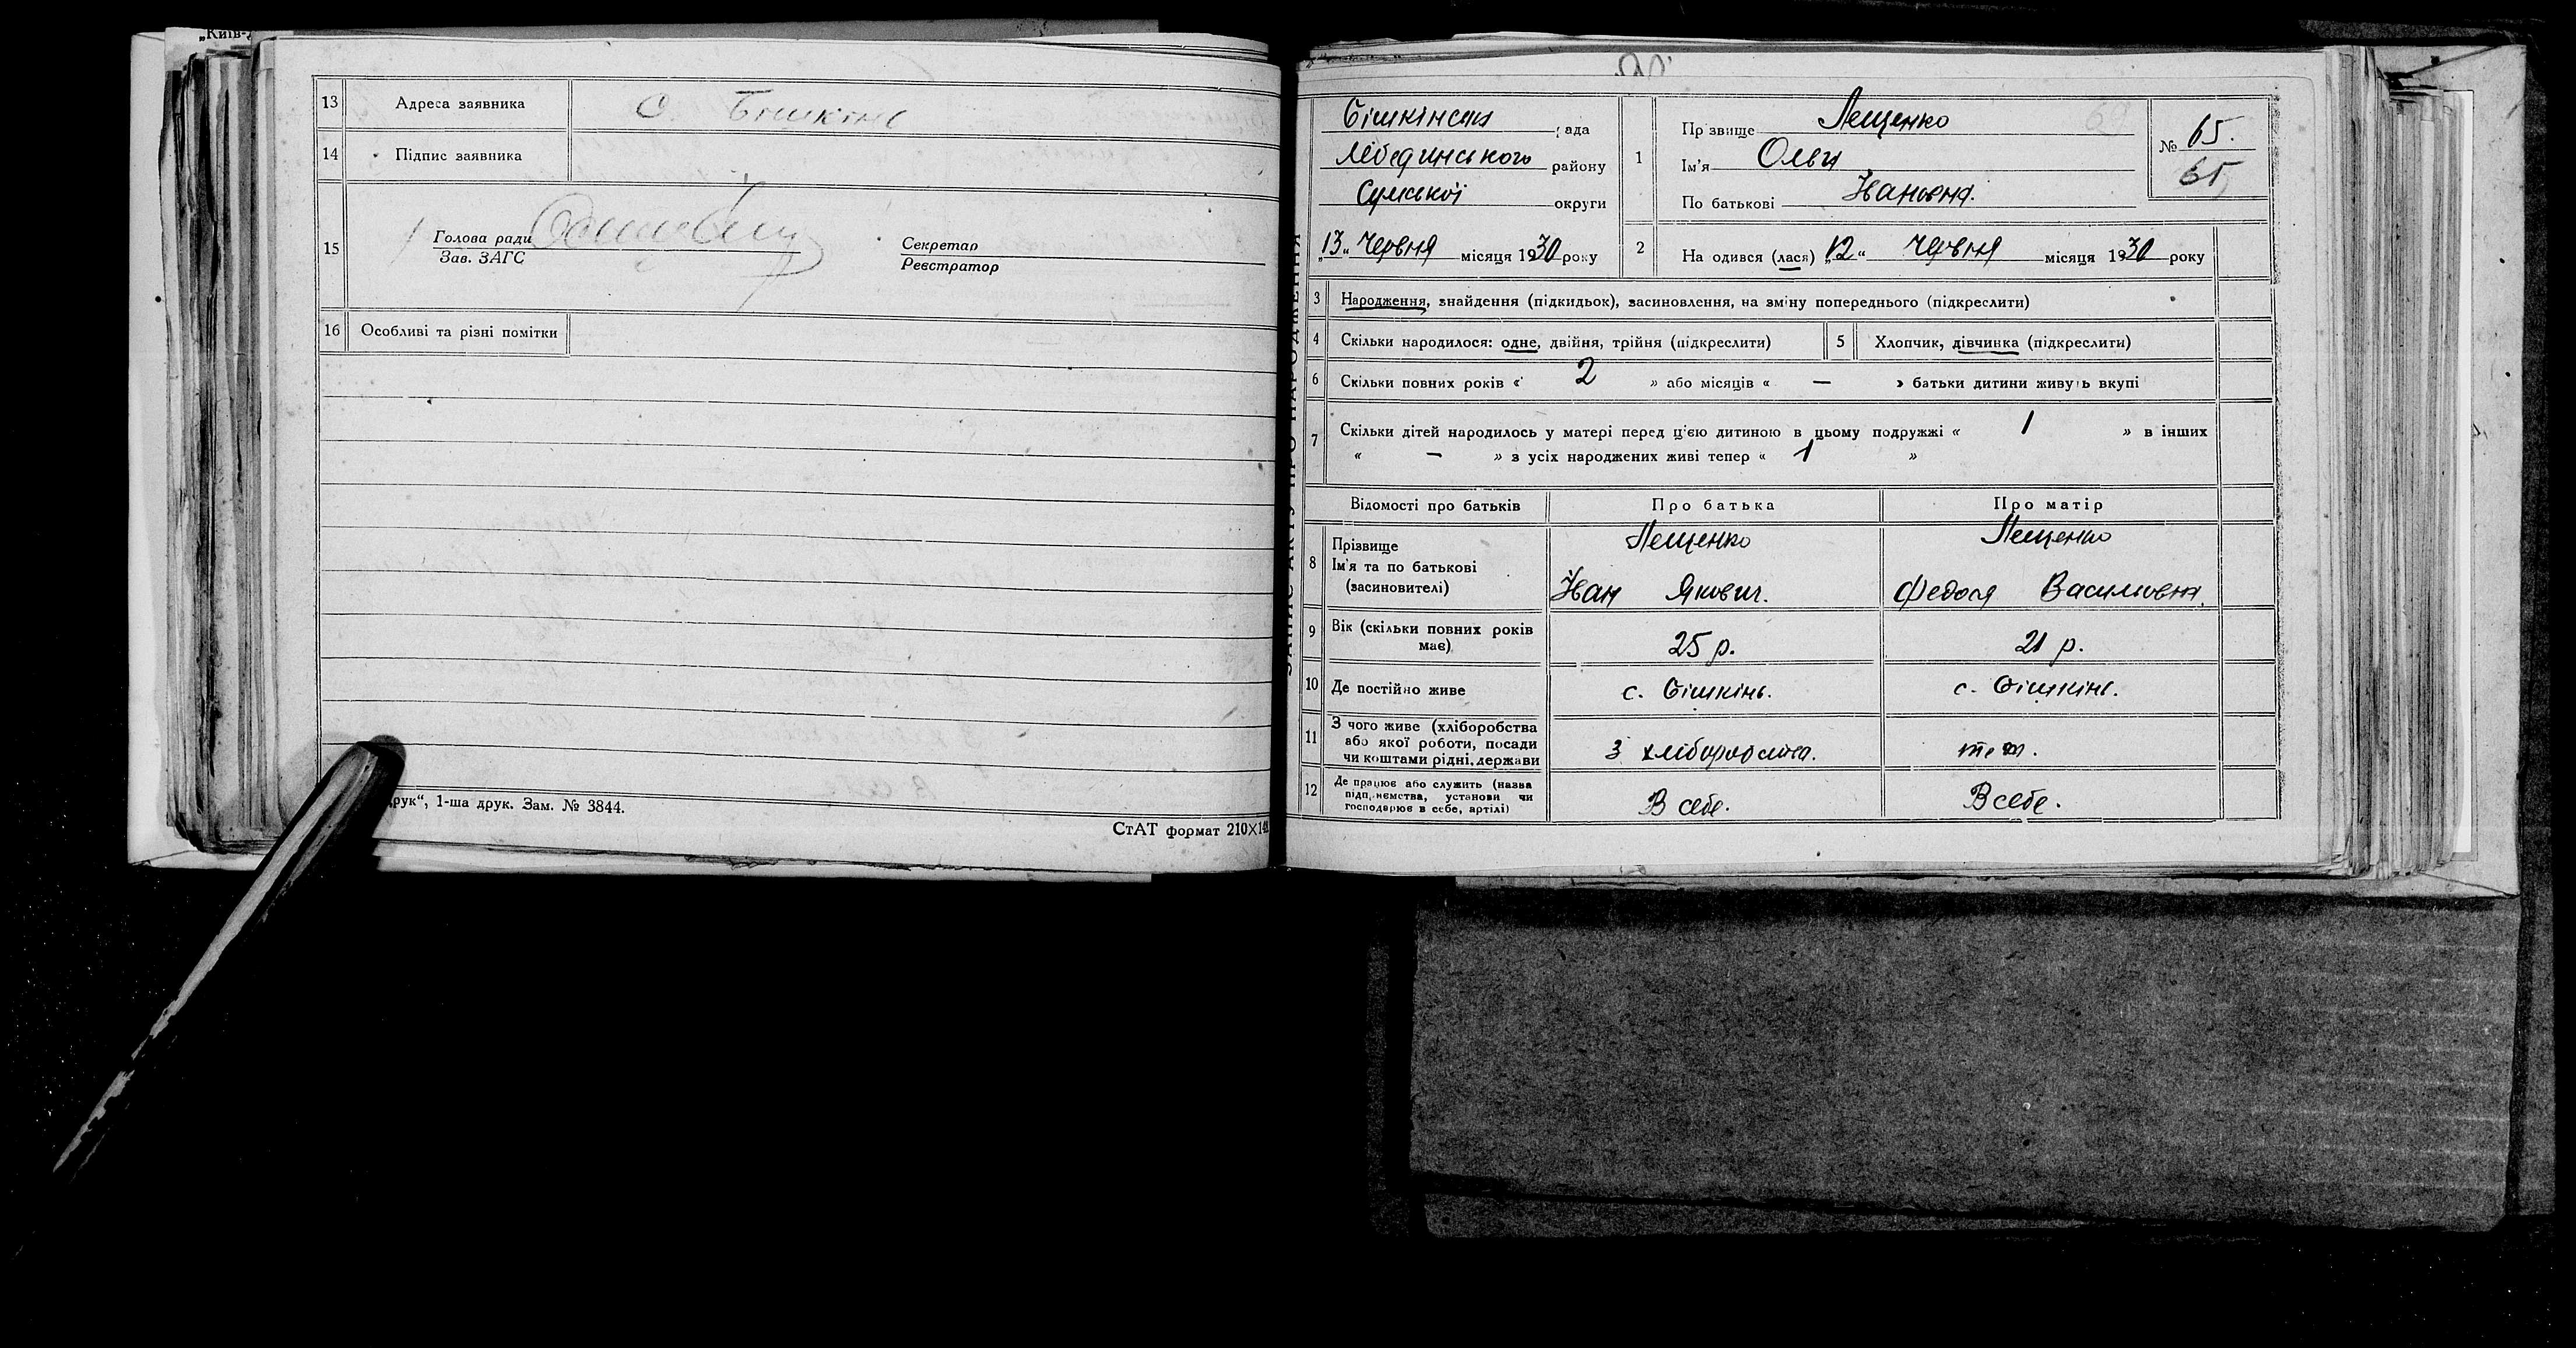 „Київ-
13 Адреса заявника с. Бишкінь
14 Підпис заявника
15 Голова ради
Зав. ЗАГС
Секретар
Реєстратор
16 Особливі та різні помітки
друк“, 1-ша друк. Зам. № 3844.
СтАТ формат 210×14
ЗАПИС АКТУ ПРО НАРОДЖЕННЯ
Бішкінська рада
Лебединського району
Сумської округи
„13“ Червня місяця 1930 року
1 Прізвище Лещенко
Ім'я Ольга
По батькові Іванівна.
№ 65.
65
2 На одився (лася) „12“ Червня місяця 1930 року
3 Народження, знайдення (підкидьок), засиновлення, на зміну попереднього (підкреслити)
4 Скільки народилося: одне, двійня, трійня (підкреслити) 5 Хлопчик, дівчинка (підкреслити)
6 Скільки повних років « 2 » або місяців « — » батьки дитини живуть вкупі
7 Скільки дітей народилось у матері перед ц'єю дитиною в цьому подружжі « 1 » в інших
« — » з усіх народжених живі тепер « 1 »
Відомості про батьків Про батька Про матір
8 Прізвище
Ім'я та по батькові
(засиновителі)
Лещенко
Іван Якович.
Лещенко
Федося Василівна
9 Вік (скільки повних років
має)
25 р. 21 р.
10 Де постійно живе с. Бішкінь. с. Бішкінь.
11 З чого живе (хліборобства
або якої роботи, посади
чи коштами рідні, держави
З хліборобства. теж.
12 Де працює або служить (назва
підприємства, установи чи
господарює в себе, артілі)
В себе. В себе.